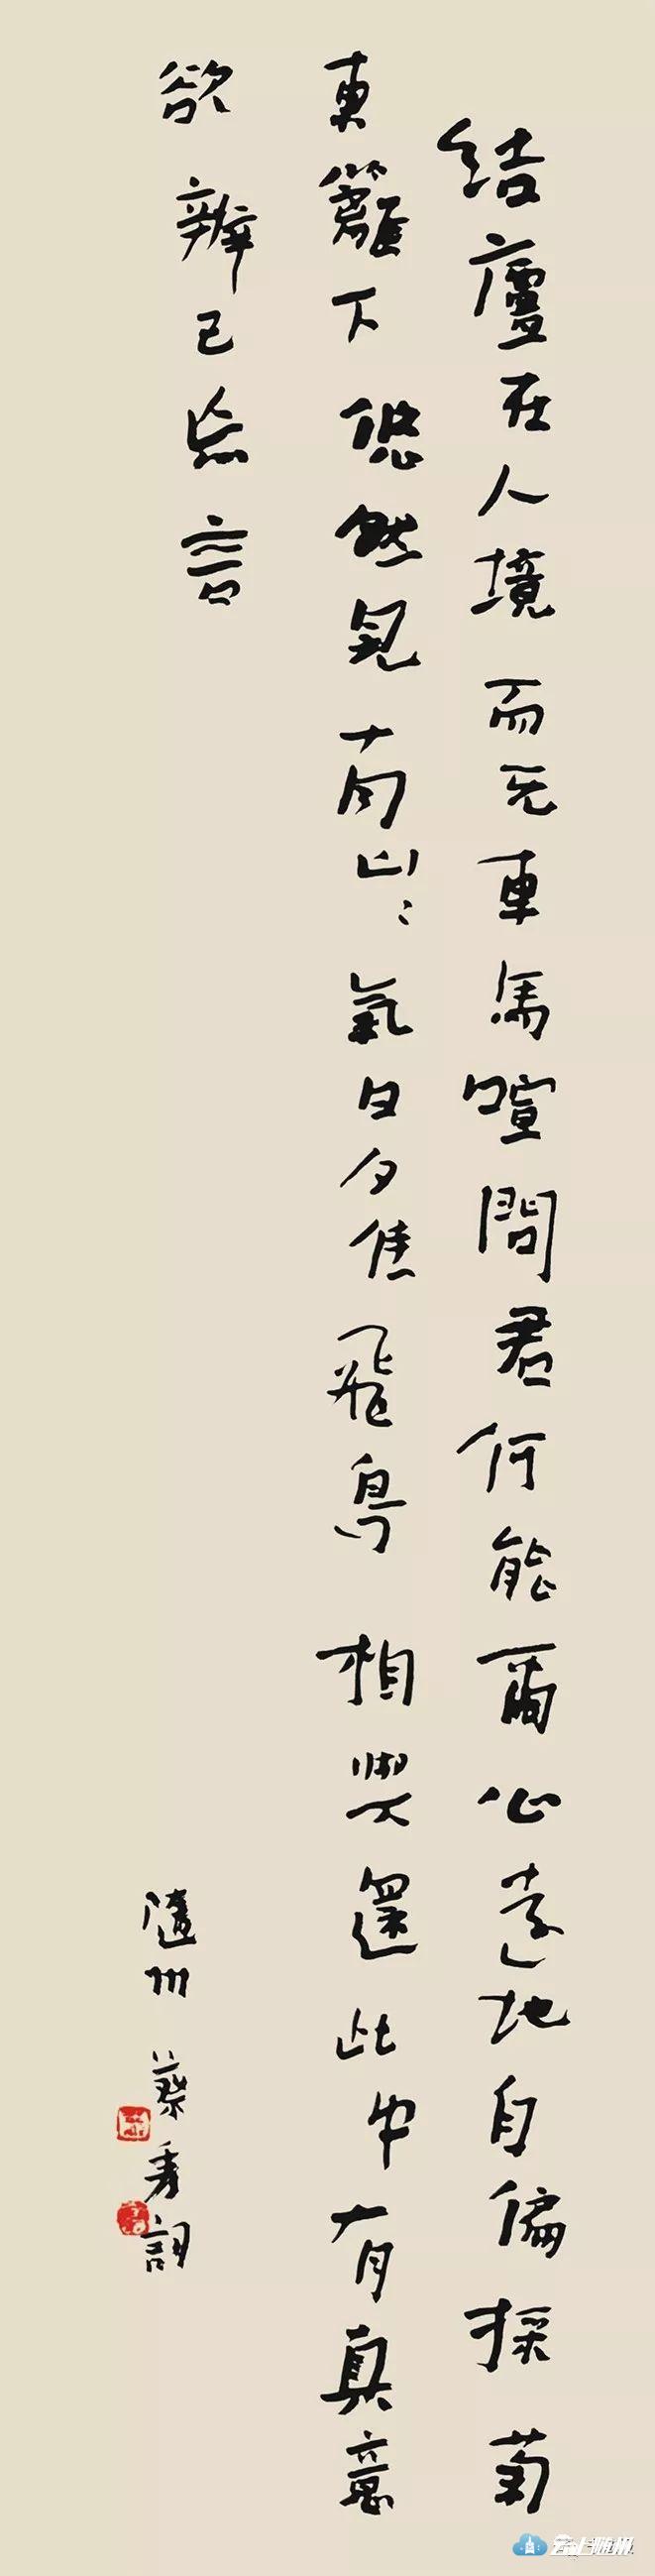 结廬在人境而无車馬喧問君何能爾心遠地自偏採菊
東籬下悠然見南山〻氣日夕佳飛鳥相與還此中有真意
欲辨已忘言
隨州 蔡秀詞
云上随州